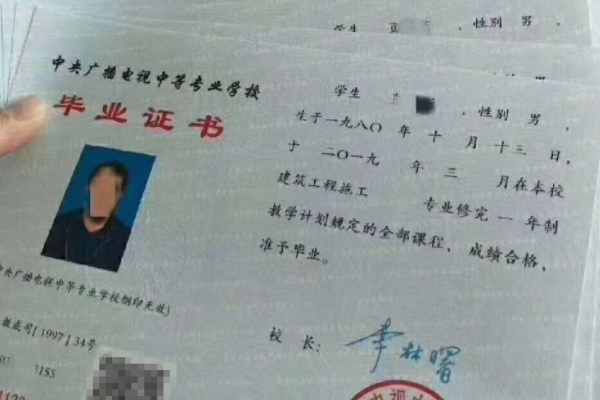 学生 性别 男,
中央广播电视中等专业学校
毕业证书
学生 , 性别 男,
生于一九八〇年 十 月 十三 日,
于 二〇一九 年 三 月在本校
建筑工程施工 专业修完 一 年制
教学计划规定的全部课程, 成绩合格,
准予毕业。
中央广播电视中等专业学校钢印无效)
教成司[1997]34号
155
校 长: 李林曙